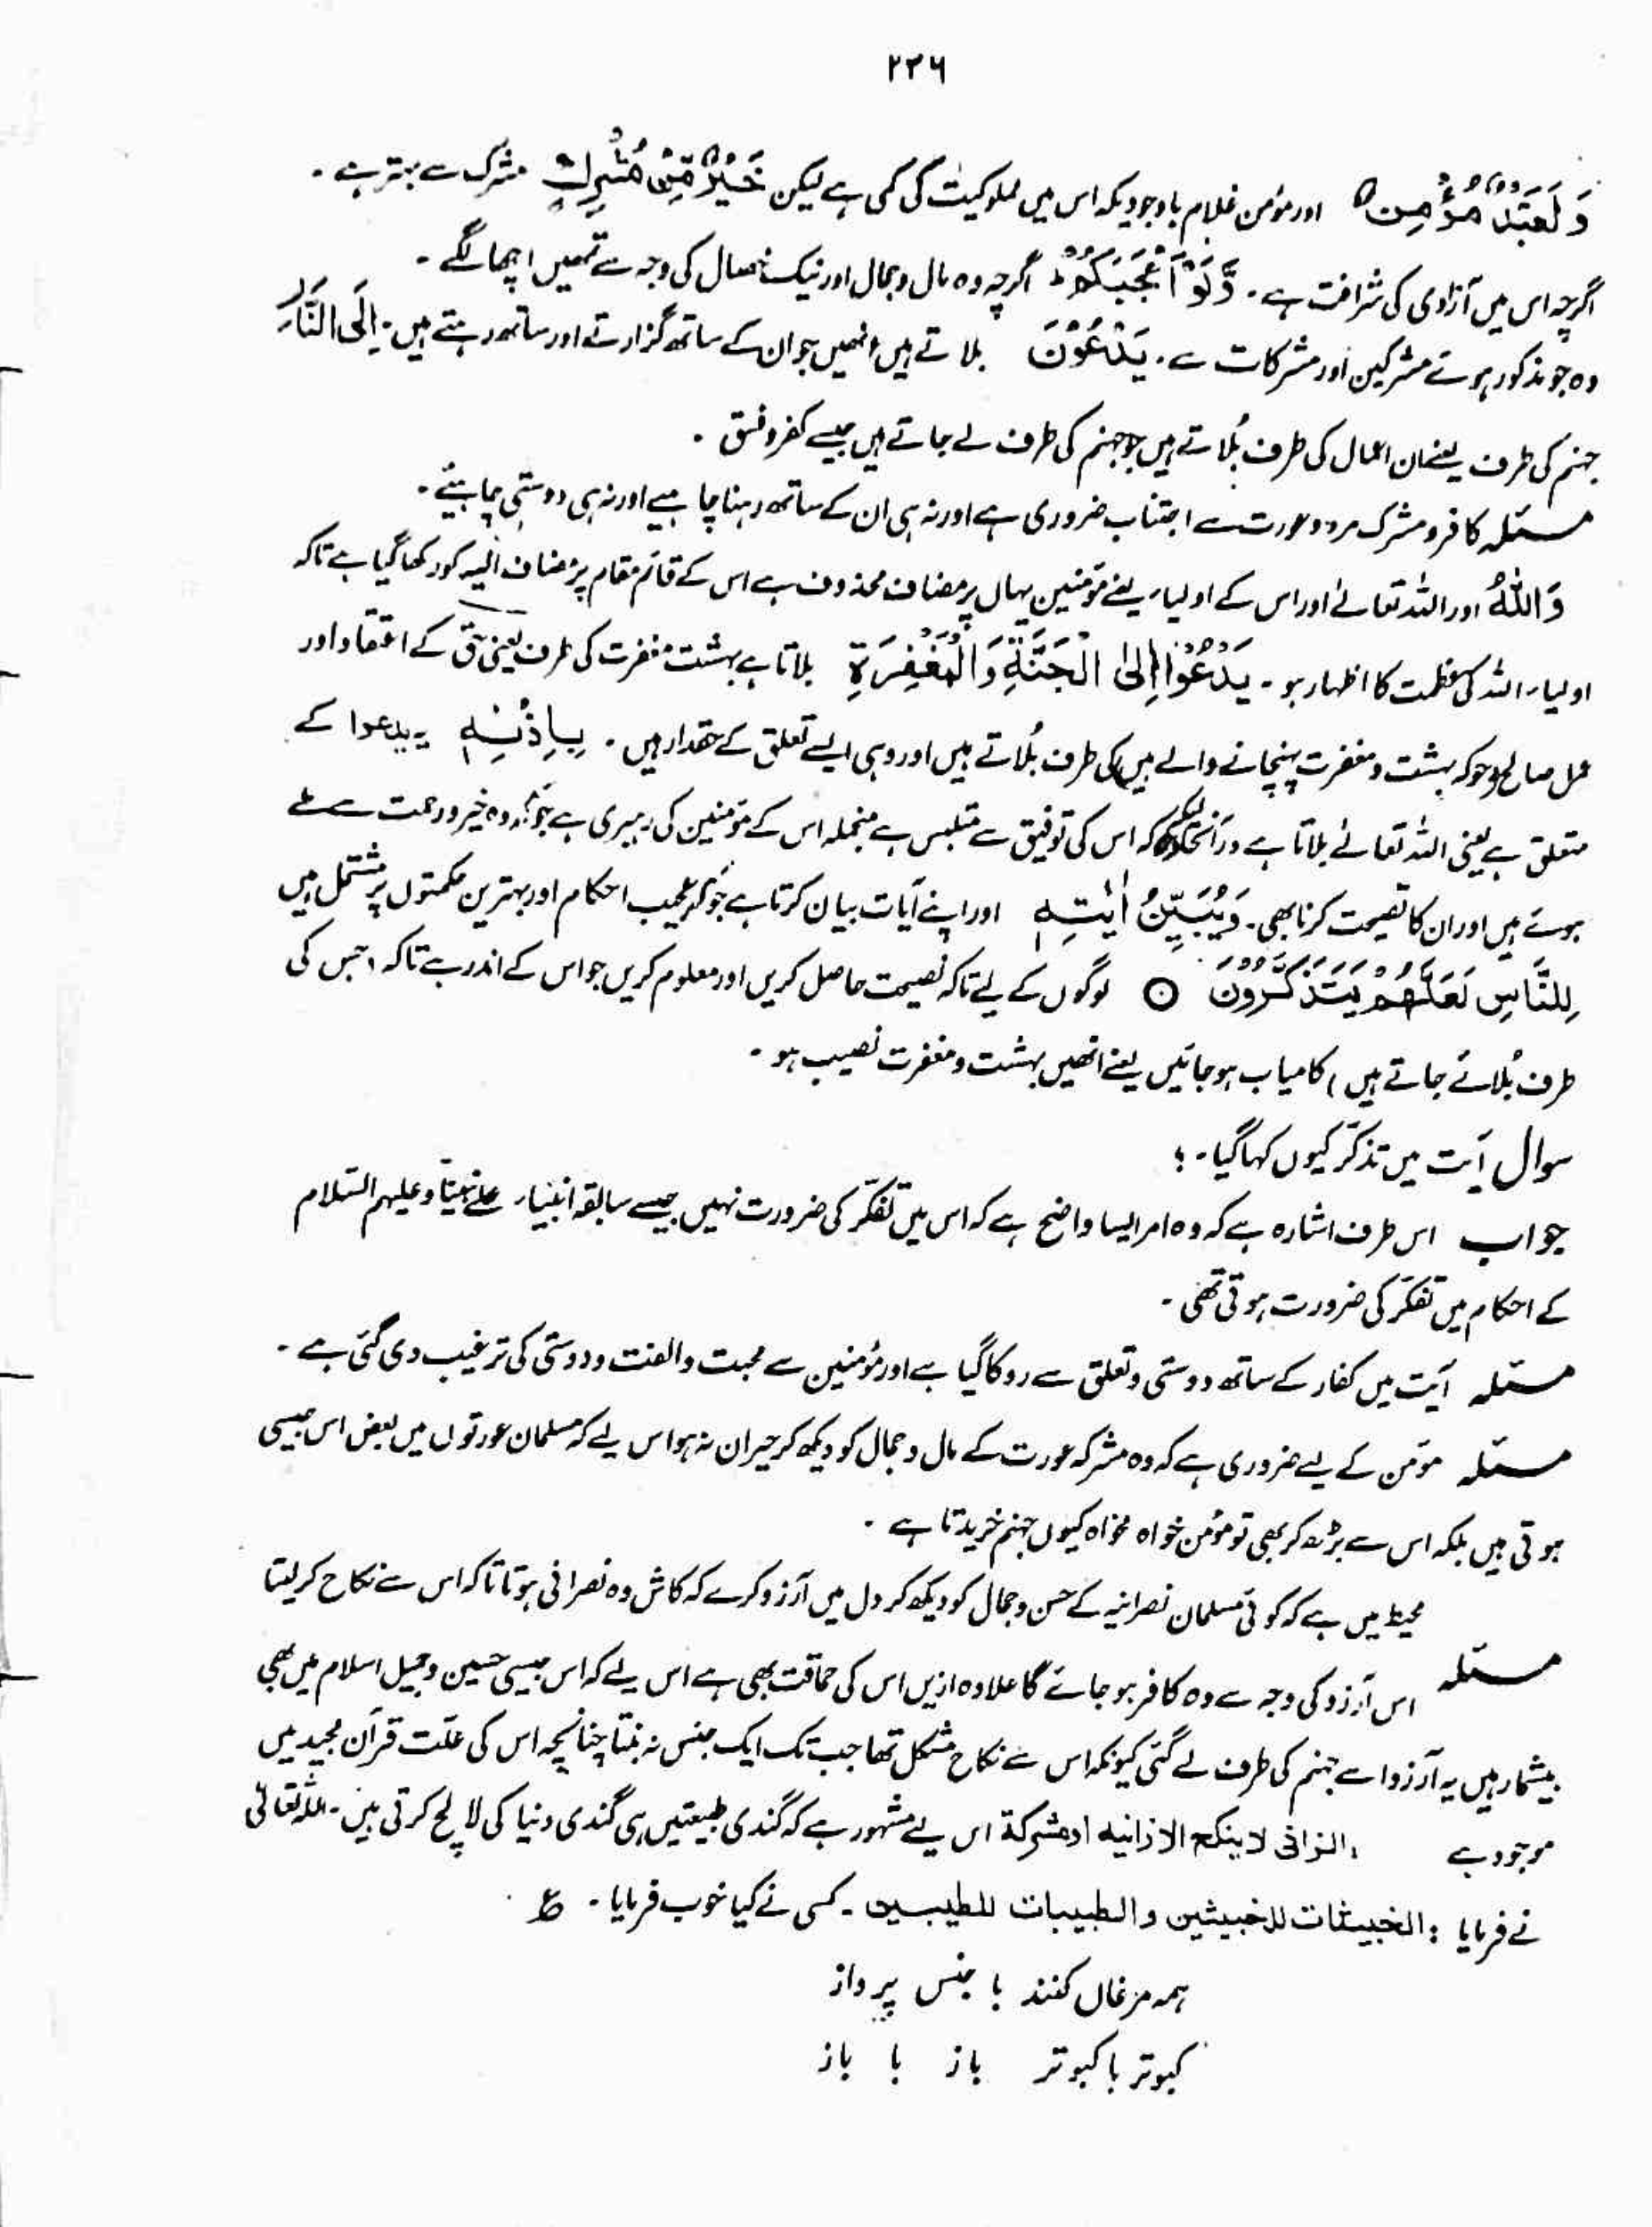 ۲۳۶
وَلَعَبْدٌ مُّؤْمِنٌ اور مؤمن غلام باوجودیکہ اس میں مملوکیت کی کمی ہے لیکن خَيْرٌ مِّنْ مُّشْرِكٍ مشرک سے بہتر ہے ۔
اگرچہ اس میں آزادی کی شرافت ہے ۔ وَّلَوْ اَعْجَبَكُمْ ط اگرچہ وہ مال و جمال اور نیک خصال کی وجہ سے تمھیں اچھا لگے ۔
وہ جو مذکور ہوئے مشرکین اور مشرکات سے ۔ يَدْعُوْنَ بلاتے ہیں انھیں جو ان کے ساتھ گزارتے اور ساتھ رہتے ہیں ۔ اِلَى النَّارِ
جہنم کی طرف یعنے ان اعمال کی طرف بُلاتے ہیں جو جہنم کی طرف لے جاتے ہیں جیسے کفر و فسق ۔
مسئلہ کافر و مشرک مرد و عورت سے اجتناب ضروری ہے اور نہ ہی ان کے ساتھ رہنا چاہیے اور نہ ہی دوستی چاہیئے ۔
وَاللّٰهُ اور اللہ تعالےٰ اور اس کے اولیاء یعنے مؤمنین یہاں پر مضاف محذوف ہے اس کے قائم مقام پر مضاف الیہ کو رکھا گیا ہے تاکہ
اولیاء اللہ کی عظمت کا اظہار ہو ۔ يَدْعُوْٓا اِلَى الْجَنَّةِ وَالْمَغْفِرَةِ بلاتا ہے بہشت مغفرت کی طرف یعنی حق کے اعتقاد اور
عمل صالح (جو کہ بہشت و مغفرت پہنچانے والے ہیں) کی طرف بُلاتے ہیں اور وہی ایسے تعلق کے حقدار ہیں ۔ بِاِذْنِهٖ یہ یدعوا کے
متعلق ہے یعنی اللہ تعالےٰ بلاتا ہے درآنحالیکہ کہ اس کی توفیق سے متلبس ہے منجملہ اس کے مؤمنین کی رہبری ہے جو کہ وہ خیر و رحمت سے ملے
ہوئے ہیں اور ان کا نصیحت کرنا بھی ۔ وَيُبَيِّنُ اٰيٰتِهٖ اور اپنے آیات بیان کرتا ہے جو کہ عجیب احکام اور بہترین حکمتوں پر مشتمل ہیں
لِلنَّاسِ لَعَلَّهُمْ يَتَذَكَّرُوْنَ ۞ لوگوں کے لیے تاکہ نصیحت حاصل کریں اور معلوم کریں جو اس کے اندر ہے تاکہ (جس کی
طرف بُلائے جاتے ہیں) کامیاب ہو جائیں یعنے انھیں بہشت و مغفرت نصیب ہو ۔
سوال آیت میں تذکّر کیوں کہا گیا ۔ ؟
جواب اس طرف اشارہ ہے کہ وہ امر ایسا واضح ہے کہ اس میں تفکّر کی ضرورت نہیں جیسے سابقہ انبیاء علےٰ نبینا و علیہم السّلام
کے احکام میں تفکّر کی ضرورت ہوتی تھی ۔
مسئلہ آیت میں کفار کے ساتھ دوستی و تعلق سے روکا گیا ہے اور مؤمنین سے محبت و الفت و دوستی کی ترغیب دی گئی ہے ۔
مسئلہ مؤمن کے لیے ضروری ہے کہ وہ مشرکہ عورت کے مال و جمال کو دیکھ کر حیران نہ ہو اس لیے کہ مسلمان عورتوں میں بعض اس جیسی
ہوتی ہیں بلکہ اس سے بڑھ کر بھی تو مؤمن خواہ مخواہ کیوں جہنم خریدتا ہے ۔
محیط میں ہے کہ کوئی مسلمان نصرانیہ کے حسن و جمال کو دیکھ کر دل میں آرزو کرے کہ کاش وہ نصرانی ہوتا تاکہ اس سے نکاح کر لیتا
مسئلہ اس آرزو کی وجہ سے وہ کافر ہو جائے گا علاوہ ازیں اس کی حماقت بھی ہے اس لیے کہ اس جیسی حسین و جمیل اسلام میں بھی
بیشمار ہیں یہ آرزو اسے جہنم کی طرف لے گئی کیونکہ اس سے نکاح مشکل تھا جب تک ایک جنس نہ بنتا چنانچہ اس کی علّت قرآن مجید میں
موجود ہے ۔ الزانی لا ینکح الا زانیه او مشرکة اس لیے مشہور ہے کہ گندی طبیعتیں ہی گندی دنیا کی لالچ کرتی ہیں ۔ اللہ تعالیٰ
نے فرمایا : الخبیثات للخبیثین والطیبات للطیبین ۔ کسی نے کیا خوب فرمایا ۔ ؏
ہمہ مرغاں کنند با جنس پرواز
کبوتر با کبوتر باز با باز